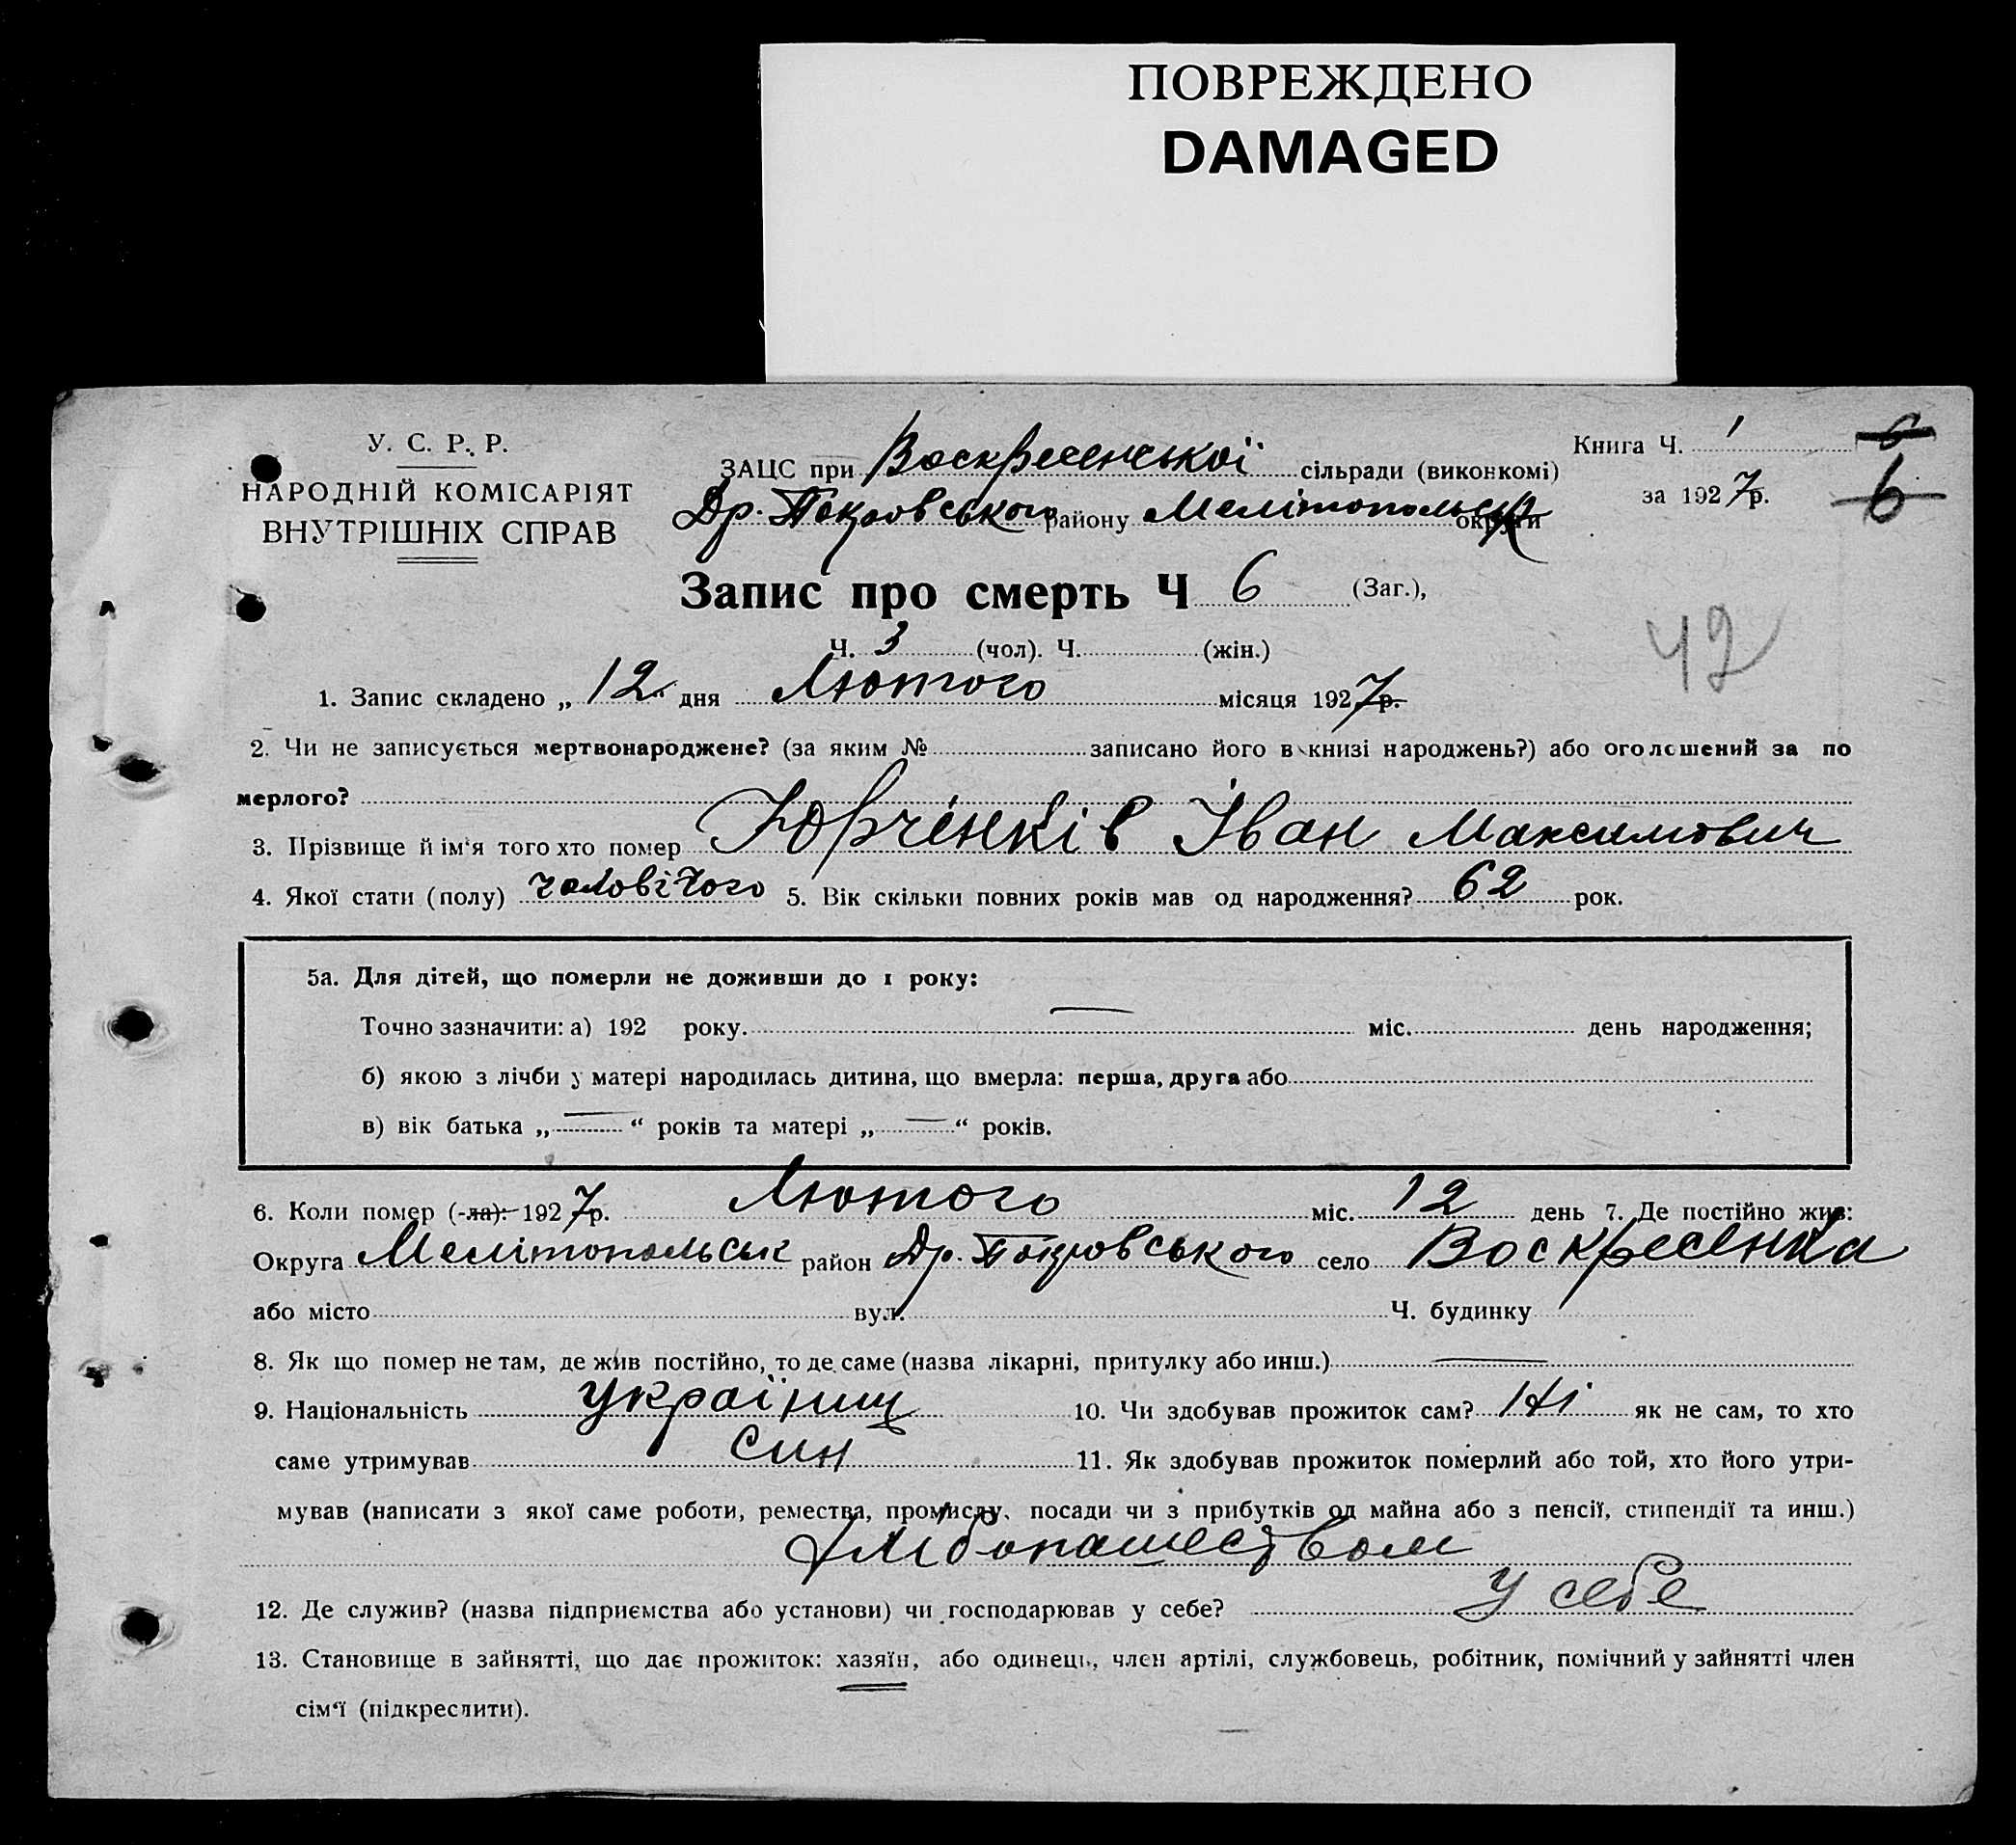 ПОВРЕЖДЕНО
DAMAGED
У. С. Р. Р.
НАРОДНІЙ КОМІСАРІЯТ
ВНУТРІШНІХ СПРАВ
ЗАЦС при Воскресенської сільради (виконкомі)
Др. Покровського району Мелітопольськ округи
Книга Ч. 1
за 1927 р.
6
6
Запис про смерть Ч 6 (Заг.),
Ч. 3 (чол). Ч. (жін.)
42
1. Запис складено „ 12 “ дня Лютого місяця 1927 р.
2. Чи не записується мертвонароджене? (за яким № записано його в книзі народжень?) або оголошений за по
мерлого?
3. Прізвище й ім‘я того хто помер Юрченків Іван Максимович
4. Якої стати (полу) чоловічого 5. Вік скільки повних років мав од народження? 62 рок.
5а. Для дітей, що померли не доживши до 1 року:
Точно зазначити: а) 192 року. міс. день народження;
б) якою з лічби у матері народилась дитина, що вмерла: перша, друга або
в) вік батька „ — “ років та матері „ — “ років.
6. Коли помер (-ла): 1927 р. Лютого міс. 12 день 7. Де постійно жив:
Округа Мелітопольськ район Др. Покровського село Воскресенка
або місто вул. Ч. будинку
8. Як що помер не там, де жив постійно, то де саме (назва лікарні, притулку або инш.) —
9. Національність українц 10. Чи здобував прожиток сам? Ні як не сам, то хто
саме утримував син 11. Як здобував прожиток померлий або той, хто його утри-
мував (написати з якої саме роботи, ремества, промислу, посади чи з прибутків од майна або з пенсії, стипендії та инш.)
хлібопашеством
12. Де служив? (назва підприємства або установи) чи господарював у себе? У себе
13. Становище в зайнятті, що дає прожиток: хазяїн, або одинець, член артілі, службовець, робітник, помічний у зайнятті член
сім‘ї (підкреслити).